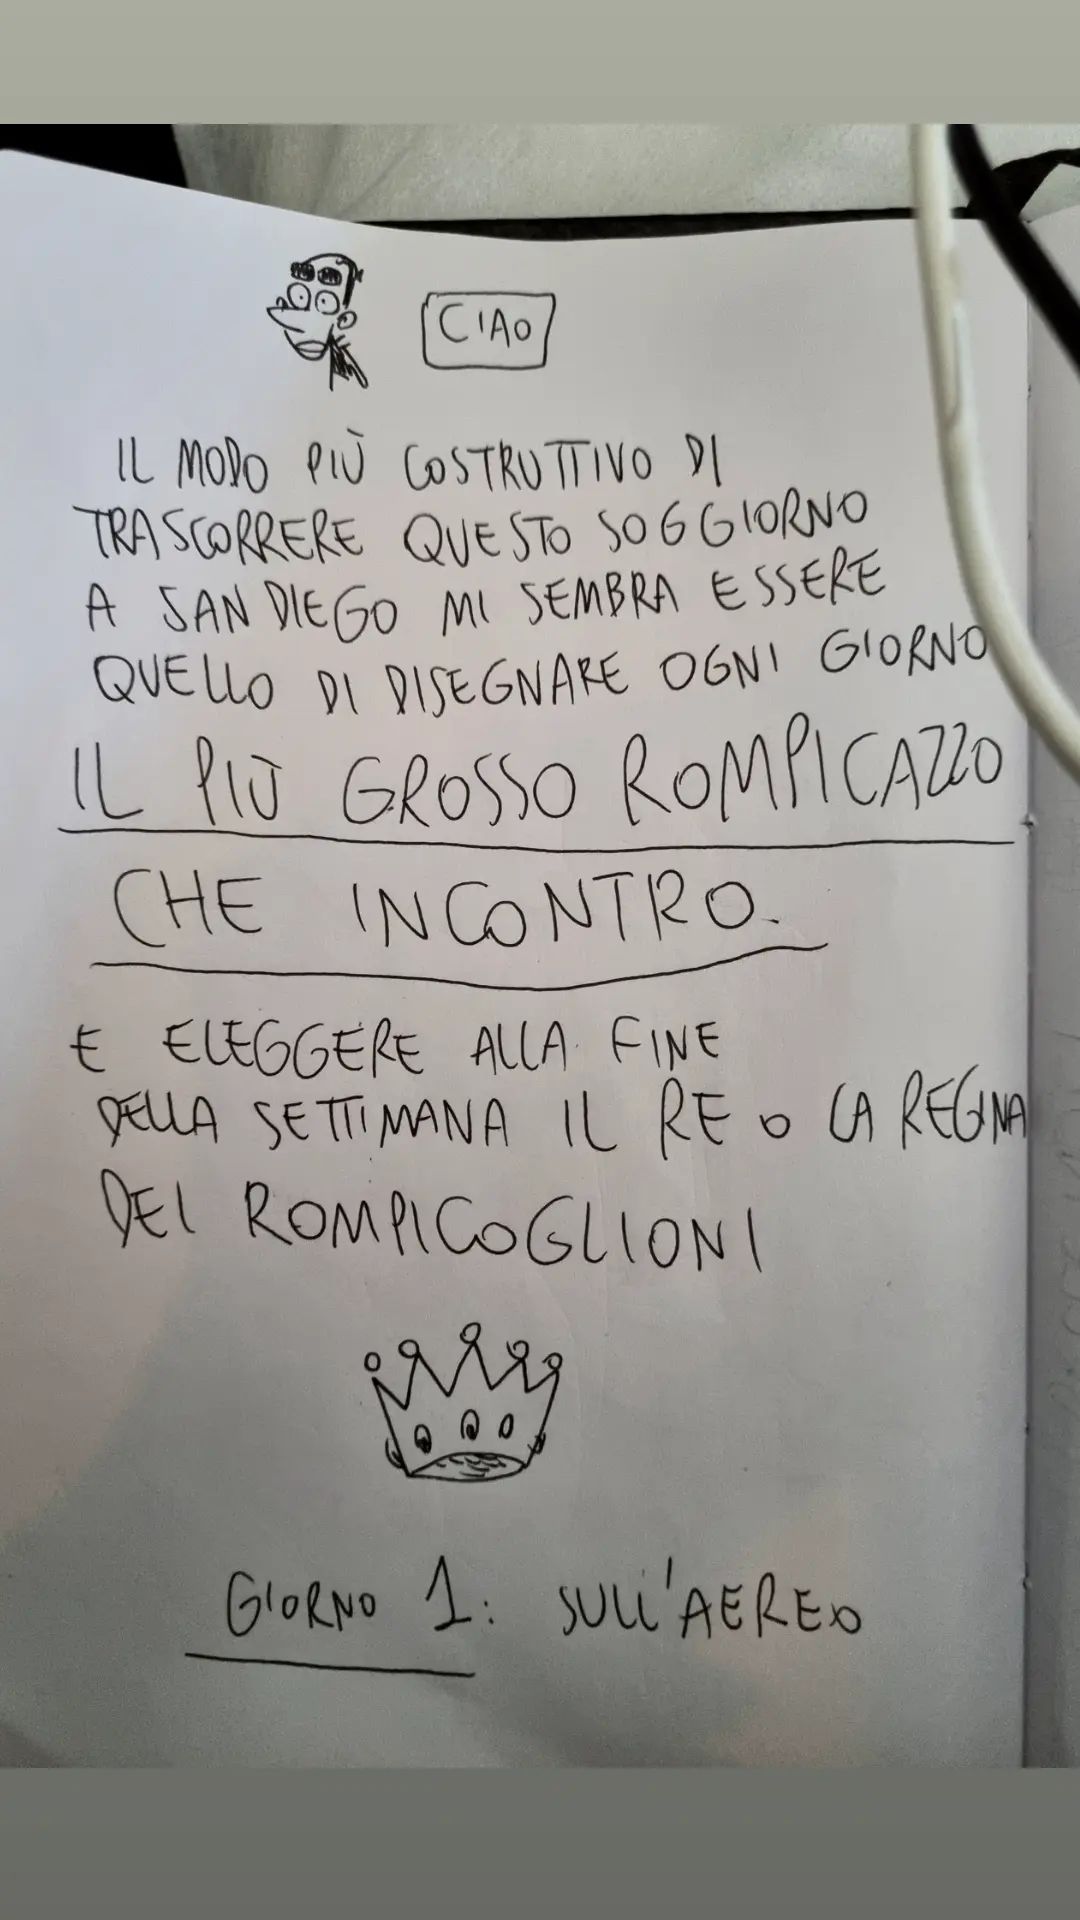 CIAO
IL MODO PIÙ COSTRUTTIVO DI
TRASCORRERE QUESTO SOGGIORNO
A SAN DIEGO MI SEMBRA ESSERE
QUELLO DI DISEGNARE OGNI GIORNO
IL PIÙ GROSSO ROMPICAZZO
CHE INCONTRO.
E ELEGGERE ALLA FINE
DELLA SETTIMANA IL RE O LA REGINA
DEI ROMPICOGLIONI
GIORNO 1: SULL'AEREO